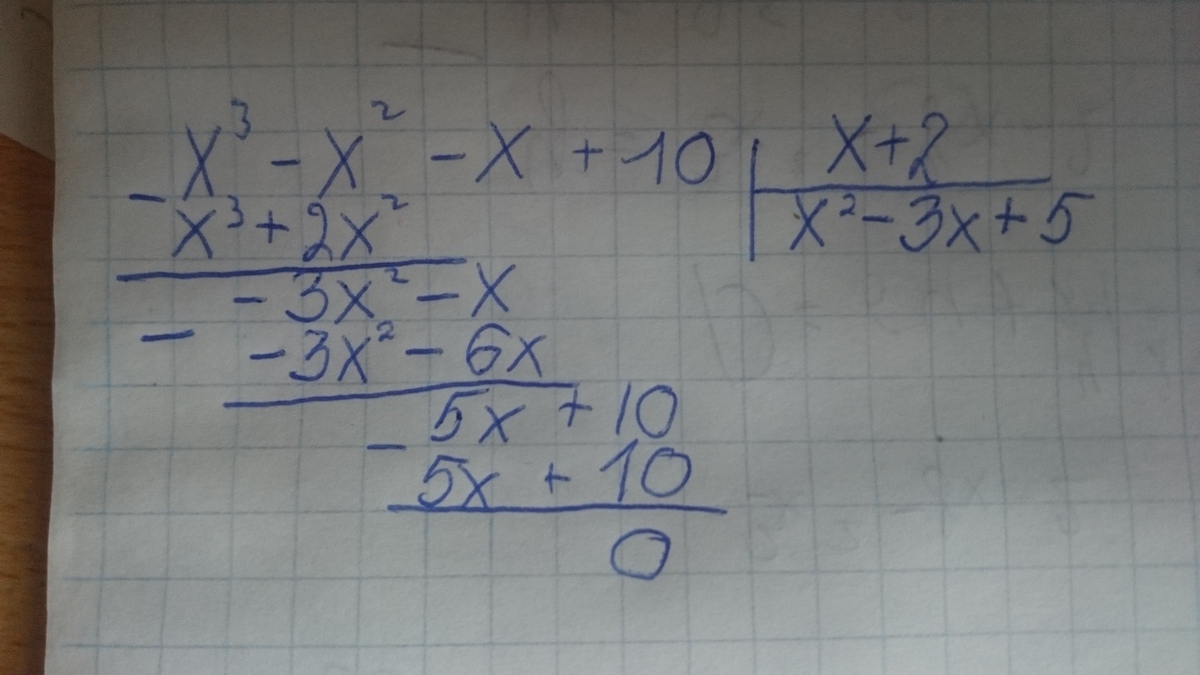 x³ - x² - x + 10 | x + 2
- x³ + 2x² | x² - 3x + 5
- 3x² - x
- - 3x² - 6x
5x + 10
- 5x + 10
0